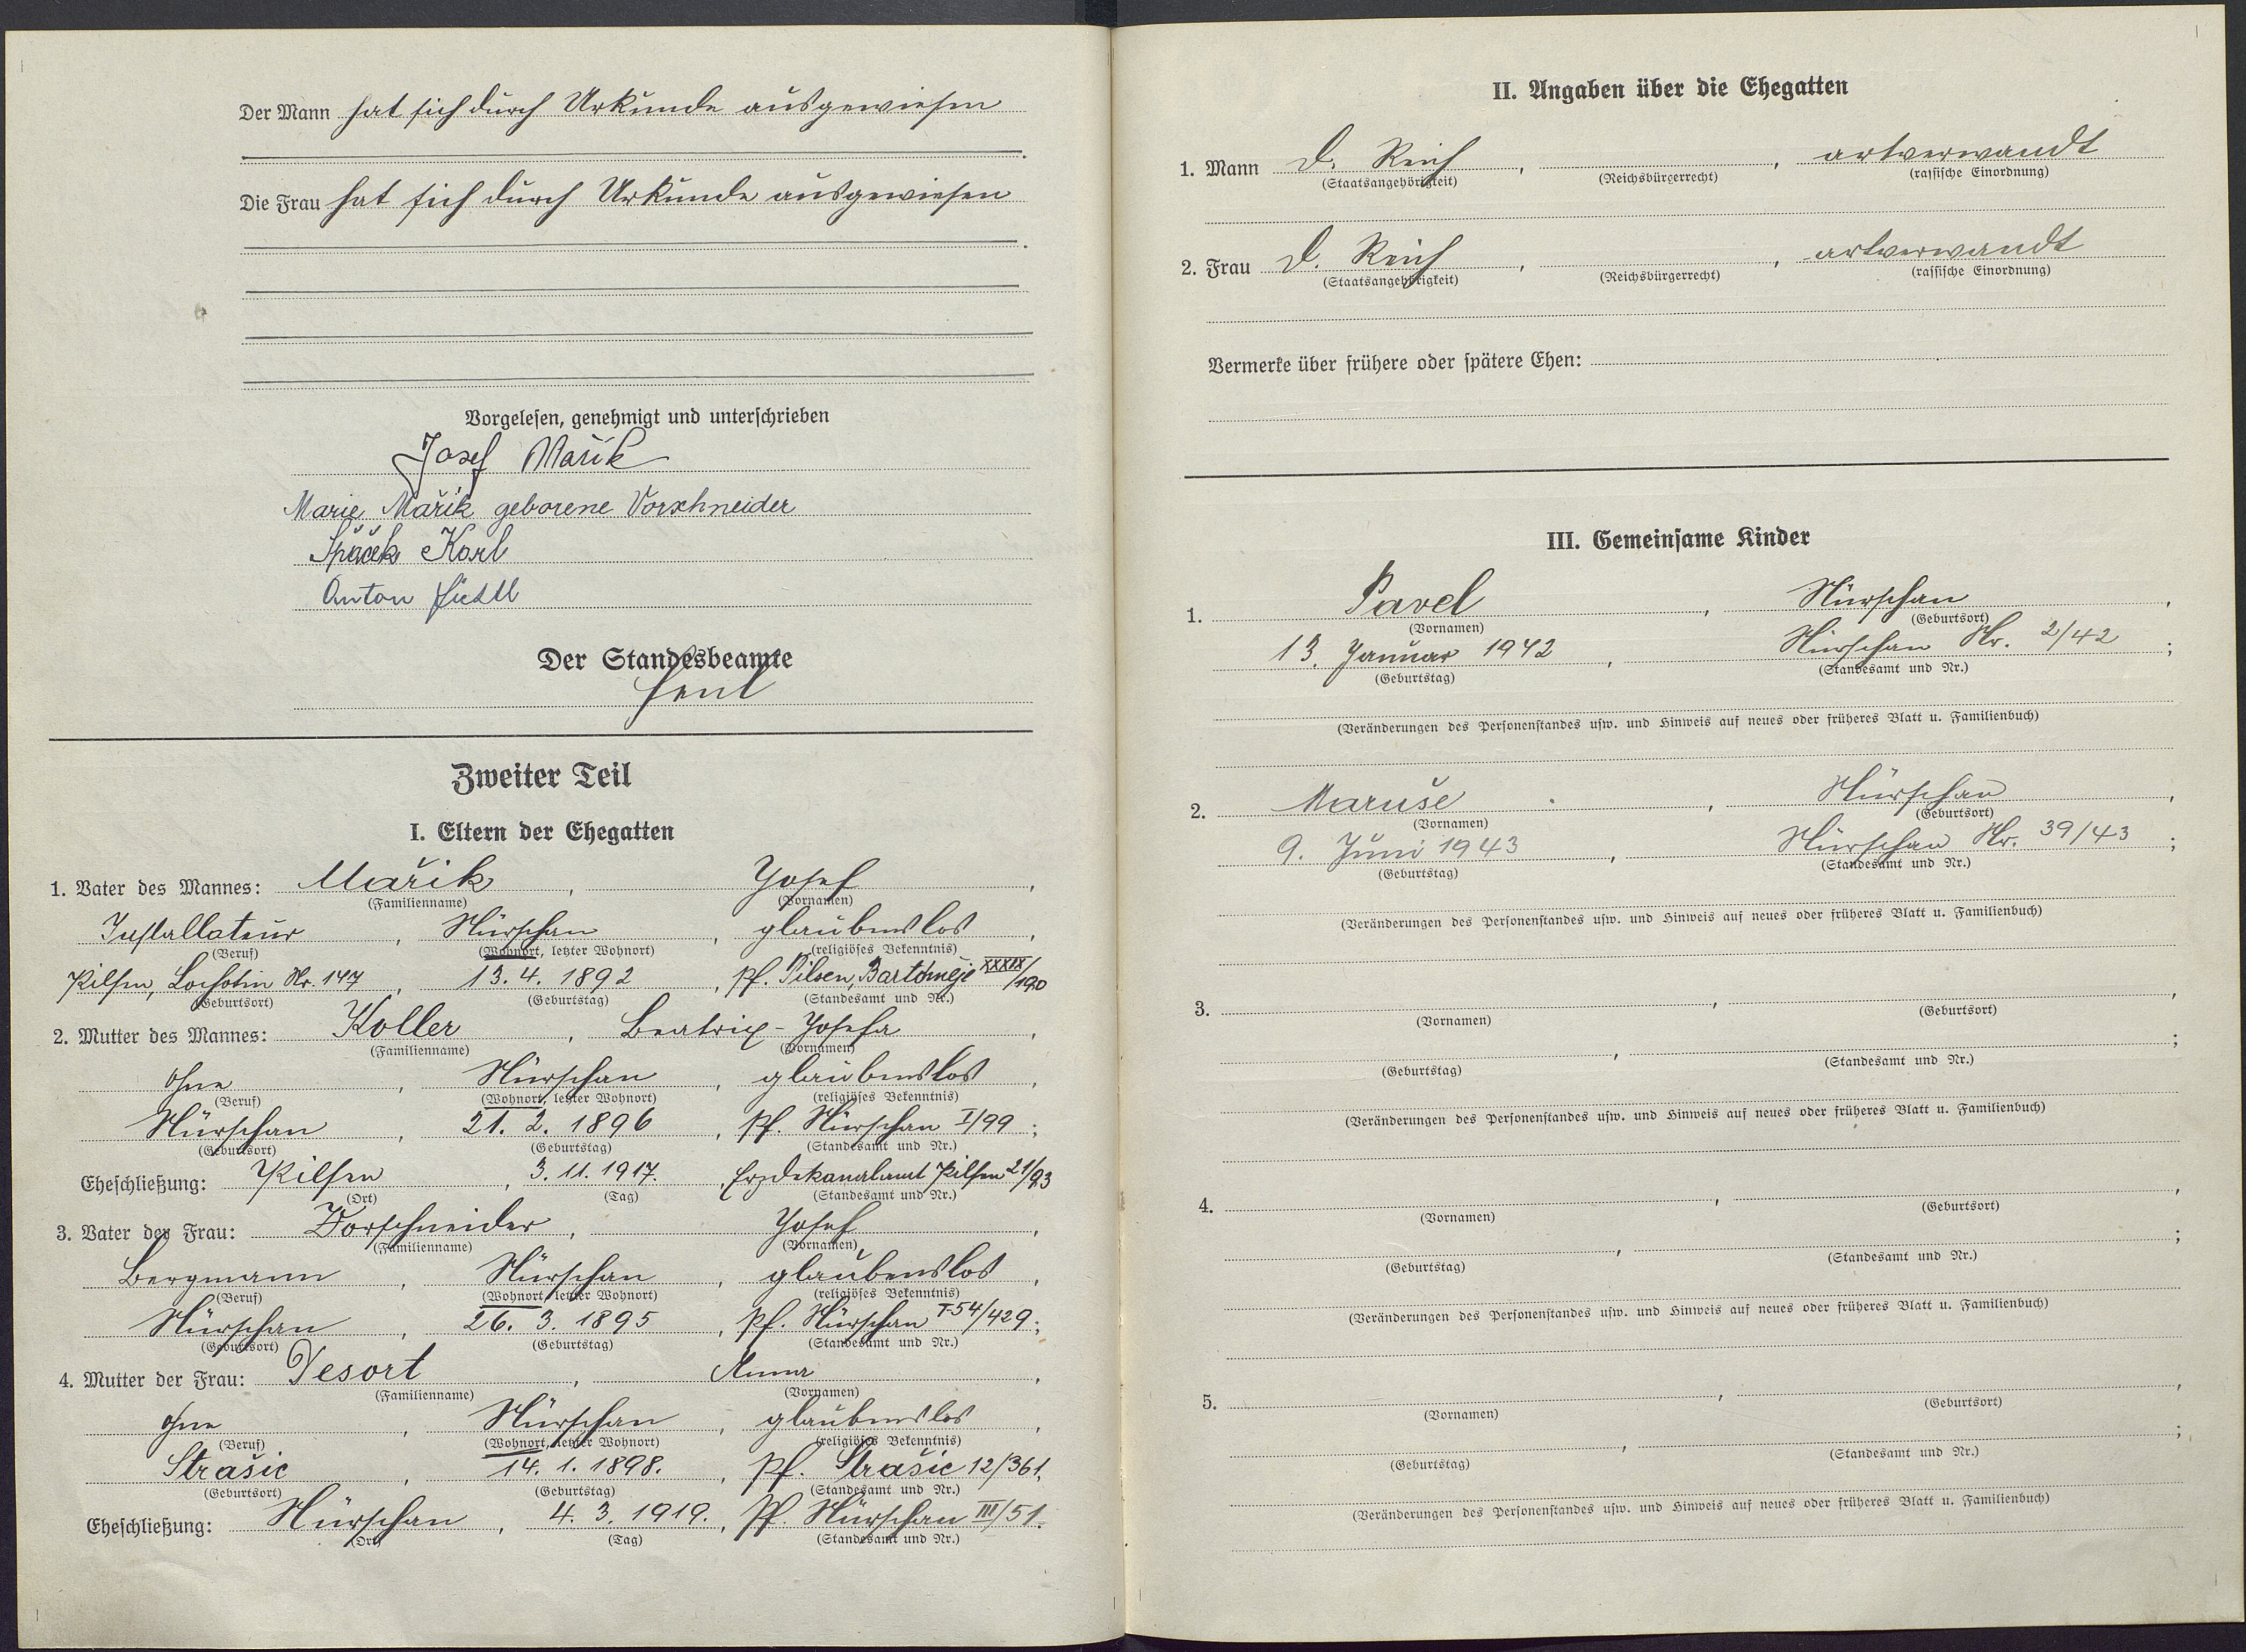 Der Mann hat sich durch Urkunde ausgewiesen
Die Frau hat sich durch Urkunde ausgewiesen
Vorgelesen, genehmigt und unterschrieben
Josef Mařík
Marie Mařík geborene Vorschneider
Špaček Karl
Anton
Der Standesbeamte
Zweiter Teil
I. Eltern der Ehegatten
1. Vater des Mannes: Mařik, Josef,
(Familienname) (Vornamen)
Installateur, Nürschan, glaubenslos,
(Beruf) (Wohnort, letzter Wohnort) (religiöses Bekenntnis)
Pilsen, Lochotin Nr. 147, 13.4.1892, Pf. Pilsen, Bartoměje XXXIX/190
(Geburtsort) (Geburtstag) (Standesamt und Nr.)
2. Mutter des Mannes: Koller, Beatrix-Josefa,
(Familienname) (Vornamen)
ohne, Nürschan, glaubenslos,
(Beruf) (Wohnort, letzter Wohnort) (religiöses Bekenntnis)
Nürschan, 21. 2. 1896, Pf. Nürschan I/99;
(Geburtsort) (Geburtstag) (Standesamt und Nr.)
Eheschließung: Pilsen, 3. 11. 1917., Erzdekanalamt Pilsen 21/93
(Ort) (Tag) (Standesamt und Nr.)
3. Vater der Frau: Vorschneider, Josef,
(Familienname) (Vornamen)
Bergmann, Nürschan, glaubenslos,
(Beruf) (Wohnort, letzter Wohnort) (religiöses Bekenntnis)
Nürschan, 26. 3. 1895, Pf. Nürschan I-54/429;
(Geburtsort) (Geburtstag) (Standesamt und Nr.)
4. Mutter der Frau: Desort, Anna,
(Familienname) (Vornamen)
ohne, Nürschan, glaubenslos,
(Beruf) (Wohnort, letzter Wohnort) (religiöses Bekenntnis)
Strašic, 14. 1. 1898., Pf. Strašic 12/361;
(Geburtsort) (Geburtstag) (Standesamt und Nr.)
Eheschließung: Nürschan, 4. 3. 1919., Pf. Nürschan III/51.
(Ort) (Tag) (Standesamt und Nr.)
II. Angaben über die Ehegatten
1. Mann D. Reich, , artverwandt
(Staatsangehörigkeit) (Reichsbürgerrecht) (rassische Einordnung)
2. Frau D. Reich, , artverwandt
(Staatsangehörigkeit) (Reichsbürgerrecht) (rassische Einordnung)
Vermerke über frühere oder spätere Ehen:
III. Gemeinsame Kinder
1. Pavel, Nürschan,
(Vornamen) (Geburtsort)
13. Januar 1942, Nürschan Nr. 2/42;
(Geburtstag) (Standesamt und Nr.)
(Veränderungen des Personenstandes usw. und Hinweis auf neues oder früheres Blatt u. Familienbuch)
2. Maruše, Nürschan,
(Vornamen) (Geburtsort)
9. Juni 1943, Nürschan Nr. 39/43;
(Geburtstag) (Standesamt und Nr.)
(Veränderungen des Personenstandes usw. und Hinweis auf neues oder früheres Blatt u. Familienbuch)
3. , ,
(Vornamen) (Geburtsort)
, ;
(Geburtstag) (Standesamt und Nr.)
(Veränderungen des Personenstandes usw. und Hinweis auf neues oder früheres Blatt u. Familienbuch)
4. , ,
(Vornamen) (Geburtsort)
, ;
(Geburtstag) (Standesamt und Nr.)
(Veränderungen des Personenstandes usw. und Hinweis auf neues oder früheres Blatt u. Familienbuch)
5. , ,
(Vornamen) (Geburtsort)
, ;
(Geburtstag) (Standesamt und Nr.)
(Veränderungen des Personenstandes usw. und Hinweis auf neues oder früheres Blatt u. Familienbuch)